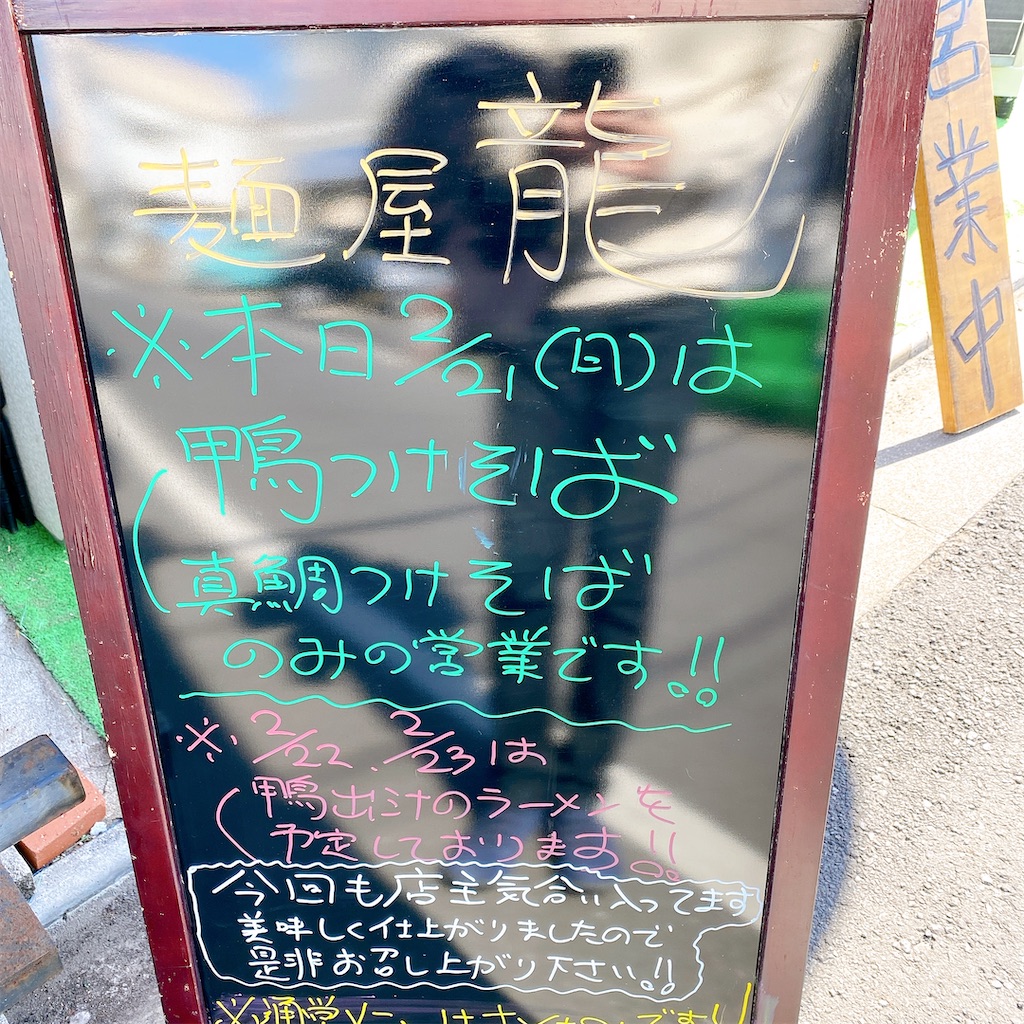 麺屋 龍
※本日2/21(月)は
鴨つけそば
真鯛つけそば
のみの営業です!!
※2/22、2/23は
鴨出汁のラーメンを
予定しております!!
今回も店主気合い入ってます
美味しく仕上がりましたので
是非お召し上がり下さい!!
営業中